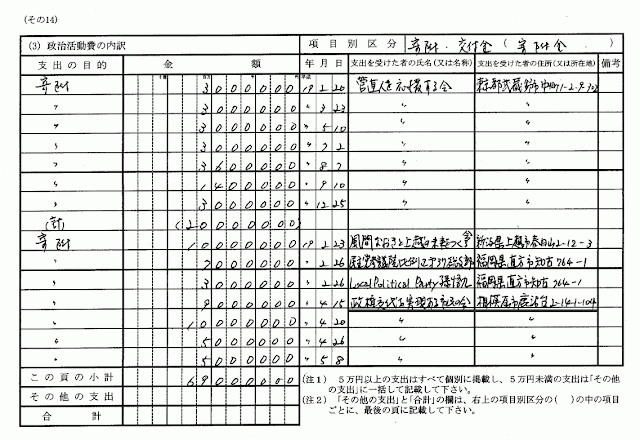 (その14)
(3) 政治活動費の内訳 項目別区分 寄附・交付金 ( 寄附金 )
支出の目的 金額 年月日 支出を受けた者の氏名(又は名称) 支出を受けた者の住所(又は所在地) 備考
寄附 3000000 19 2 20 菅直人を応援する会
〃 3000000 〃 3 23 〃 〃
〃 3000000 〃 5 10 〃 〃
〃 3000000 〃 7 2 〃 〃
〃 3600000 〃 8 7 〃 〃
〃 1400000 〃 9 10 〃 〃
〃 3000000 〃 12 25 〃 〃
(計) (20000000)
寄附 1000000 19 2 23 風間なおきと上越の未来をつくる会 新潟県上越市春日山2-12-3
〃 〃 2 26 福岡県直方市知古764-1
〃 3000000 〃 2 26 Local Political Party 福岡県直方市知古764-1
〃 9000000 〃 4 15 政権交代を実現する 相模原市鹿沼台2-14-1-104
〃 1000000 〃 4 20 〃 〃
〃 5000000 〃 4 26 〃 〃
〃 5000000 〃 5 8 〃 〃
この頁の小計 69000000
その他の支出
合計
(注1) 5万円以上の支出はすべて個別に掲載し、5万円未満の支出は「その他
の支出」に一括して記載して下さい。
(注2) 「その他の支出」と「合計」の欄は、右上の項目別区分の( )の中の項目
ごとに、最後の頁に記載して下さい。